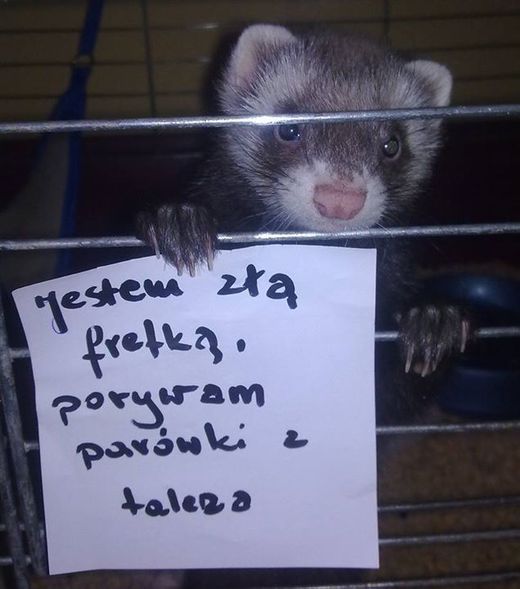 jestem złą
fretką.
porywam
parówki z
taleza